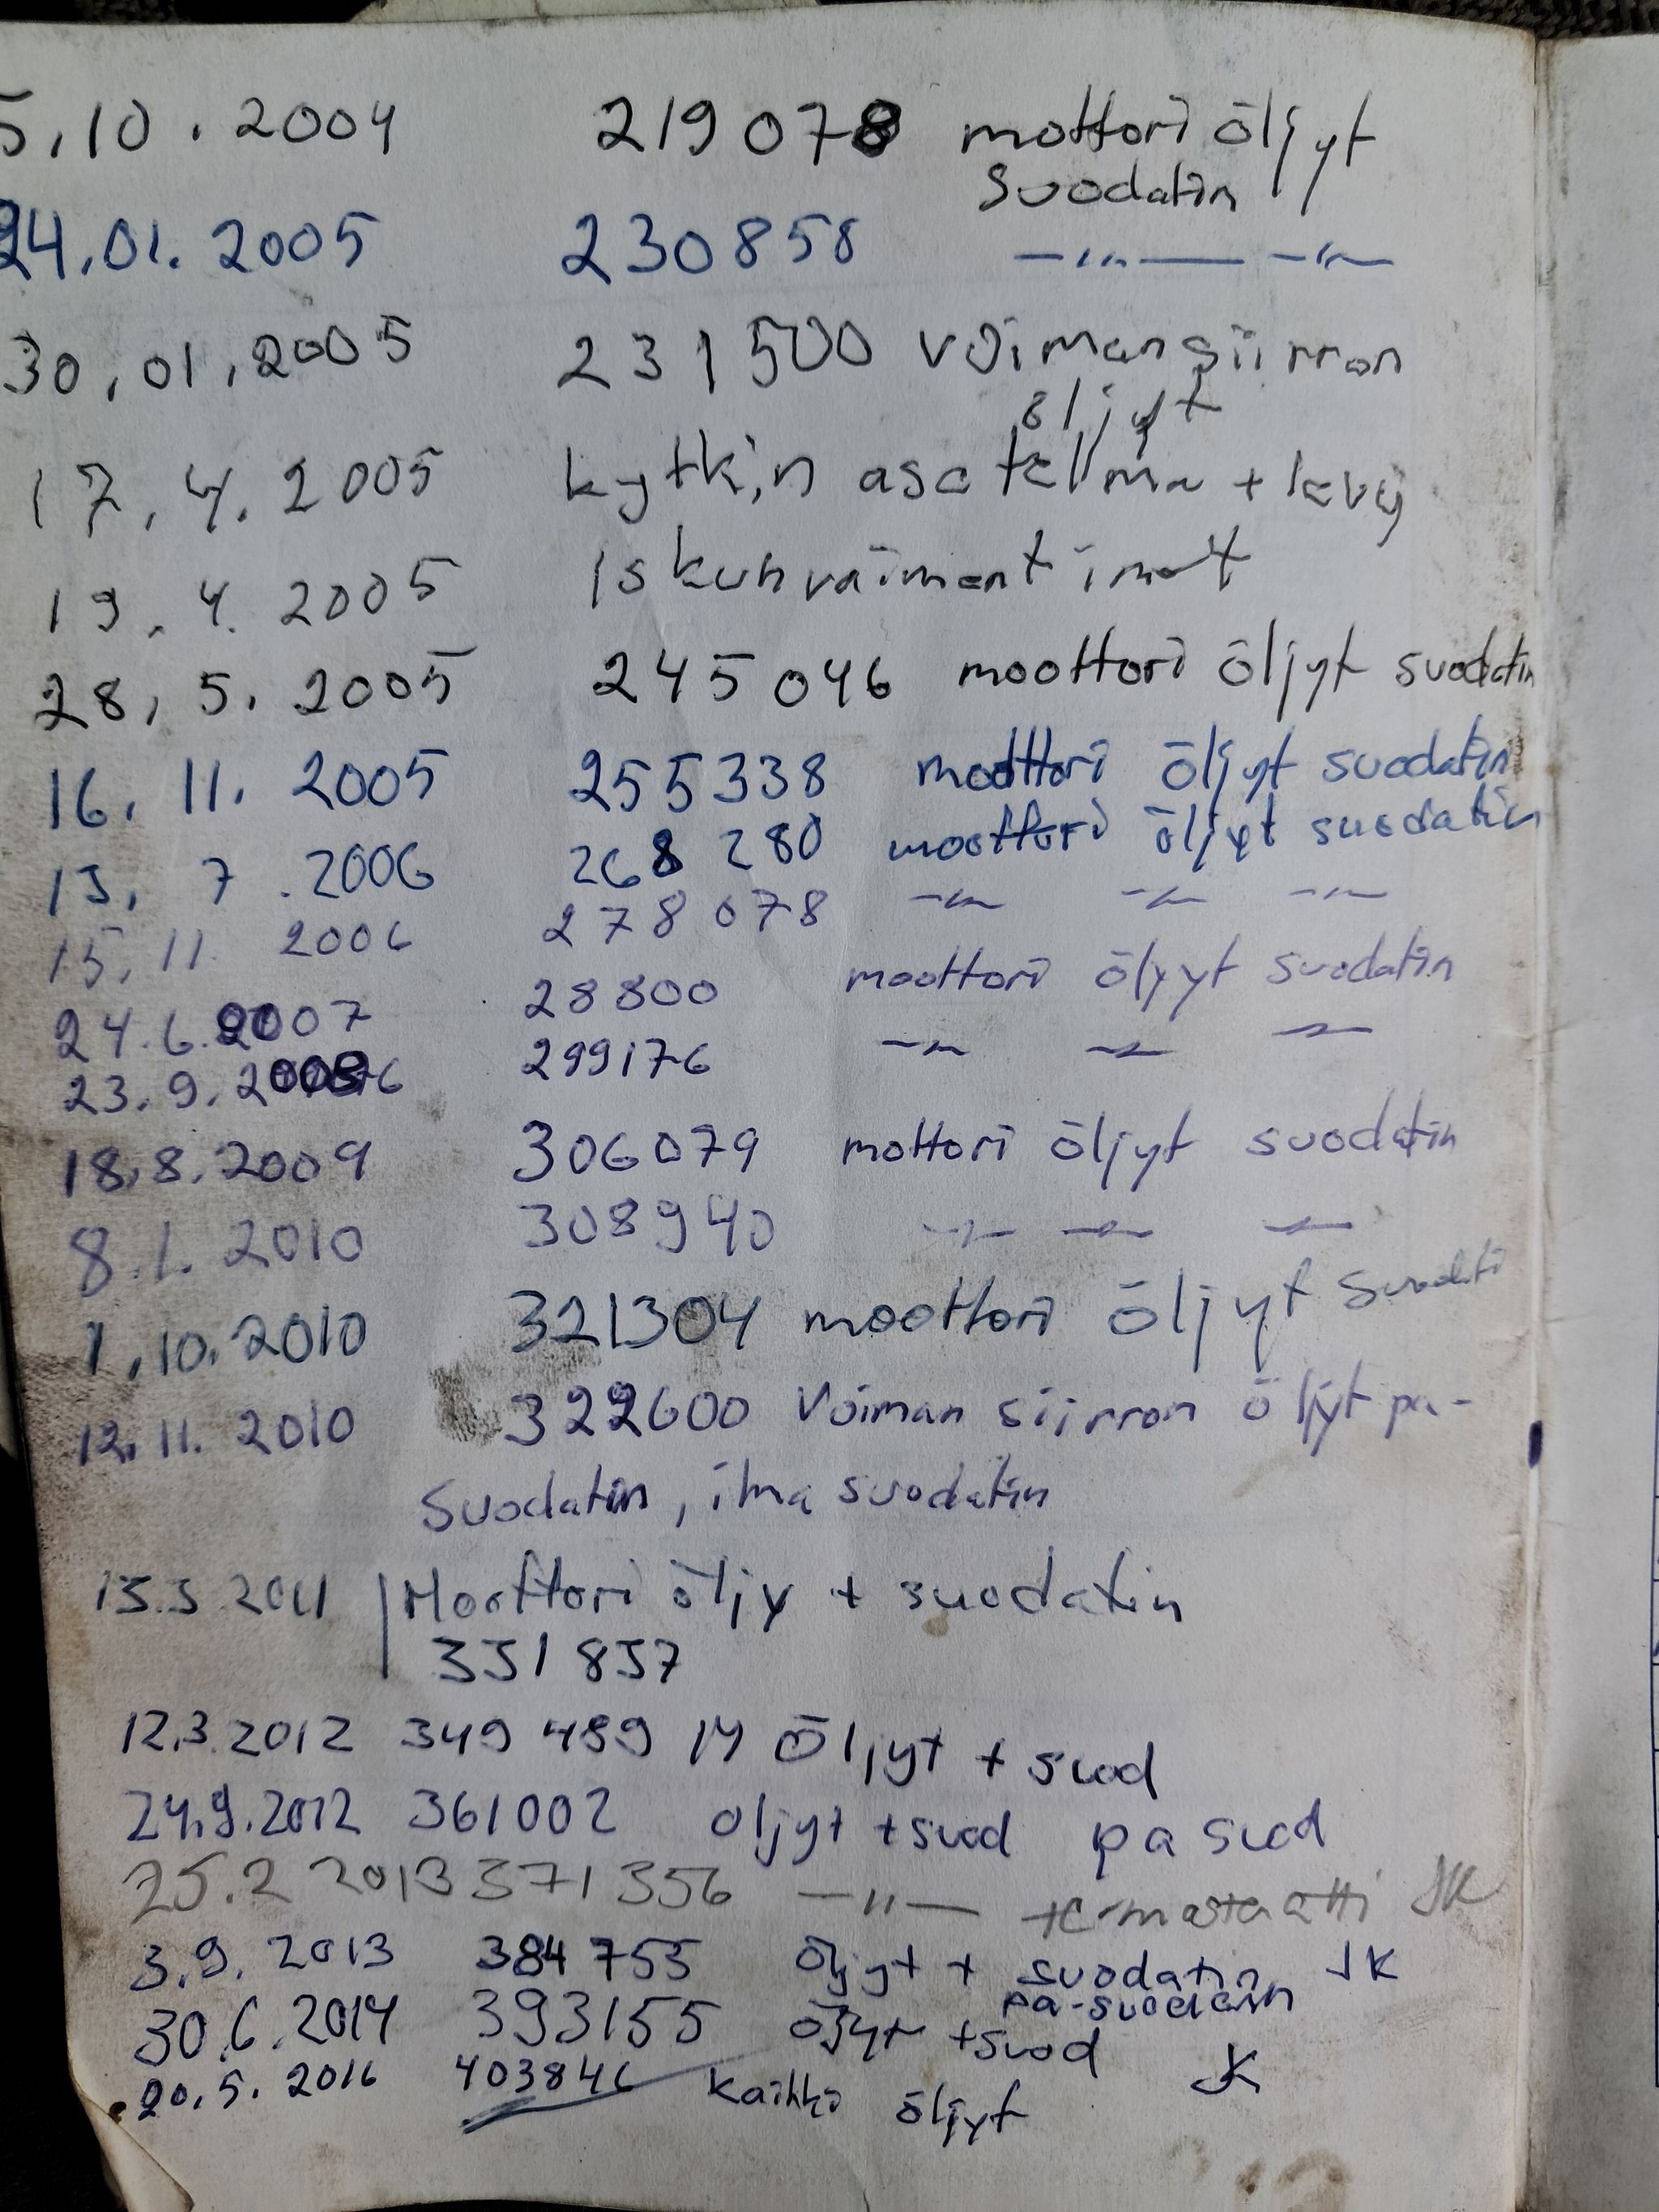 5.10.2004 219078 mottori öljyt
suodatin
24.01.2005 230858 —〃— —〃—
30.01.2005 231500 voimansiirron
öljyt
17.4.2005 kytkin asetelma + levy
19.4.2005 Iskunvaimentimet
28.5.2005 245046 moottori öljyt suodatin
16.11.2005 255338 moottori öljyt suodatin
13.7.2006 268280 moottori öljyt suodatin
15.11.2006 278078 —〃— —〃— —〃—
24.6.2007 28800 moottori öljyt suodatin
23.9.2008 299176 —〃— —〃— —〃—
18.8.2009 306079 mottori öljyt suodatin
8.1.2010 308940 —〃— —〃— —〃—
1.10.2010 321304 moottori öljyt suodati
12.11.2010 322600 Voiman siirron öljyt pa-
Suodatin, ilma suodatin
13.3.2011 Moottori öljy + suodatin
331837
12.3.2012 349489 M Öljyt + suod
24.9.2012 361002 öljyt + suod pa suod
25.2 2013 371356 —〃— JK
3.9.2013 384755 öljyt + suodatin JK
pa-suodatin
30.6.2014 393155 öljyt + suod JK
20.5.2016 403846 kaikki öljyt